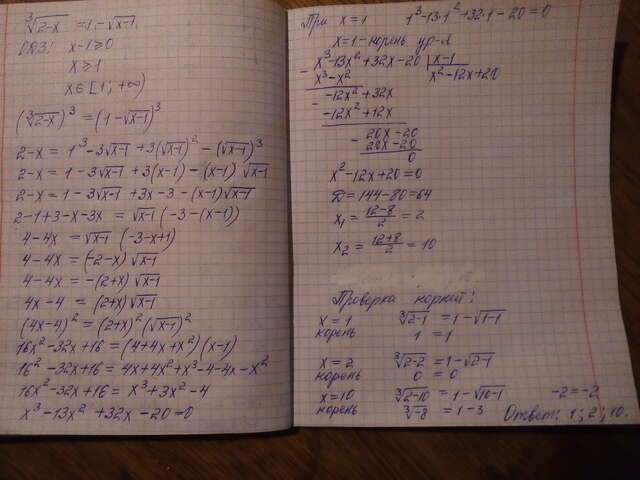 ∛(2-x) = 1-√(x-1)
ОДЗ: x-1≥0
x≥1
x∈[1; +∞)
(∛(2-x))³ = (1-√(x-1))³
2-x = 1³-3√(x-1) +3(√(x-1))² -(√(x-1))³
2-x = 1-3√(x-1) +3(x-1) -(x-1)√(x-1)
2-x = 1-3√(x-1) +3x-3-(x-1)√(x-1)
2-1+3-x-3x = √(x-1) (-3-(x-1))
4-4x = √(x-1) (-3-x+1)
4-4x = (-2-x)√(x-1)
4-4x = -(2+x)√(x-1)
4x-4 = (2+x)√(x-1)
(4x-4)² = (2+x)²(√(x-1))²
16x²-32x+16 = (4+4x+x²)(x-1)
16²-32x+16 = 4x+4x²+x³-4-4x-x²
16x²-32x+16 = x³+3x²-4
x³-13x²+32x-20=0
При x=1 1³-13·1²+32·1-20=0
x=1-корень ур-я
x³-13x²+32x-20 | x-1
x³-x² x²-12x+20
-12x²+32x
-12x²+12x
20x-20
20x-20
0
x²-12x+20=0
D=144-80=64
x₁ = (12-8)/2 = 2
x₂ = (12+8)/2 = 10
Проверка корней:
x=1 ∛(2-1) = 1-√(1-1)
корень 1 = 1
x=2 ∛(2-2) = 1-√(2-1)
корень 0 = 0
x=10 ∛(2-10) = 1-√(10-1) -2=-2
корень ∛-8 = 1-3 Ответ: 1; 2; 10.